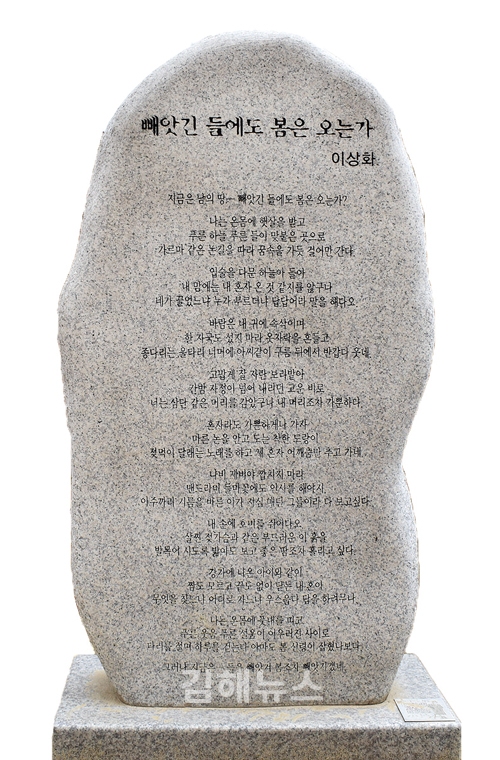 빼앗긴 들에도 봄은 오는가
이상화
지금은 남의 땅— 빼앗긴 들에도 봄은 오는가?
나는 온몸에 햇살을 받고
푸른 하늘 푸른 들이 맞붙은 곳으로
가르마 같은 논길을 따라 꿈속을 가듯 걸어만 간다.
입술을 다문 하늘아 들아
내 맘에는 내 혼자 온 것 같지를 않구나
네가 끌었느냐 누가 부르더냐 답답어라 말을 해다오
바람은 내 귀에 속삭이며
한 자국도 섰지 마라 옷자락을 흔들고
종다리는 울타리 너머에 아씨같이 구름 뒤에서 반갑다 웃네.
고맙게 잘 자란 보리밭아
간밤 자정이 넘어 내리던 고운 비로
너는 삼단 같은 머리를 감았구나 내 머리조차 가뿐하다.
혼자라도 가쁘하게나 가자
마른 논을 안고 도는 착한 도랑이
젖먹이 달래는 노래를 하고 제 혼자 어깨춤만 추고 가네.
나비 제비야 깝치지 마라
맨드라미 들마꽃에도 인사를 해야지
아주까리 기름을 바른 이가 지심 매던 그들이라 다 보고싶다.
내 손에 호미를 쥐어다오
살찐 젖가슴과 같은 부드러운 이 흙을
발목이 시도록 밟아도 보고 좋은 땀조차 흘리고 싶다.
강가에 나온 아이와 같이
짬도 모르고 끝도 없이 닫는 내 혼아
무엇을 찾느냐 어디로 가느냐 우스웁다 답을 하려무나.
나는 온몸에 풋내를 띠고
푸른 웃음 푸른 설움이 어우러진 사이로
다리를 절며 하루를 걷는다 아마도 봄 신령이 잡혔나보다.
그러나 지금은 들을 빼앗겨 봄조차 빼앗기겠네
김해뉴스